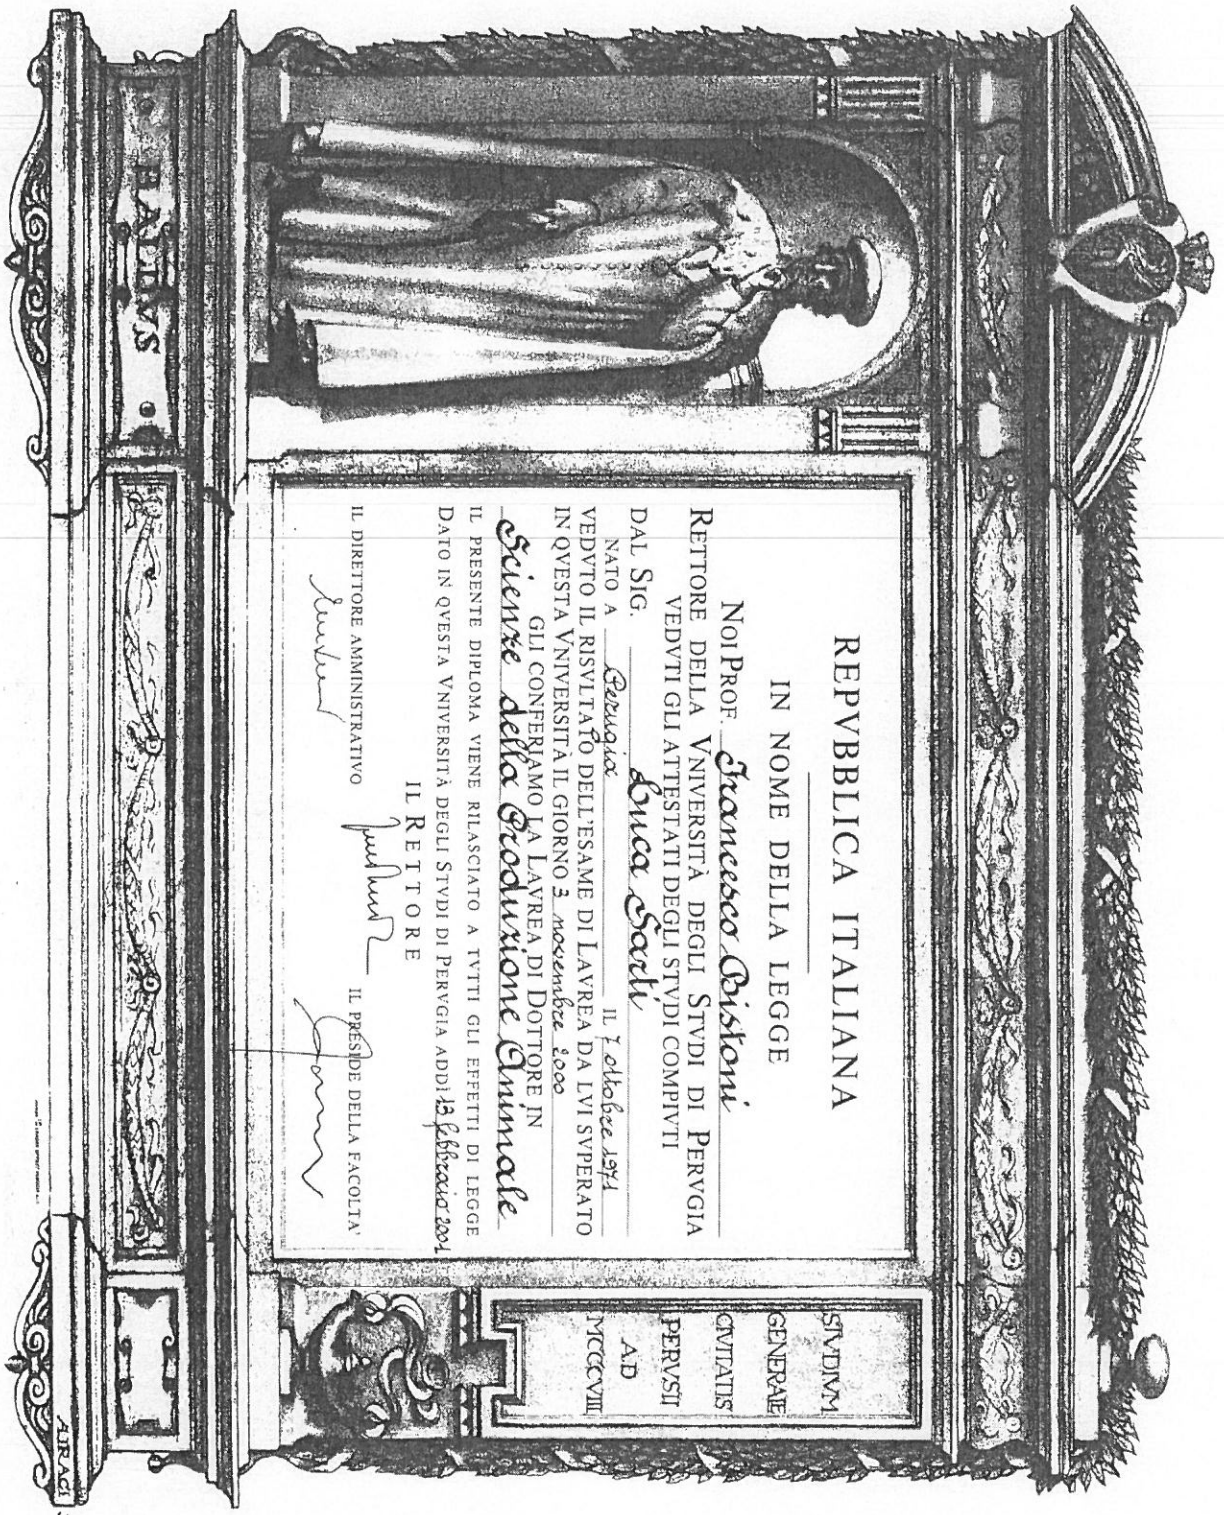 BALDVS
REPVBBLICA ITALIANA
IN NOME DELLA LEGGE
NOI PROF. Francesco Bistoni
RETTORE DELLA VNIVERSITÀ DEGLI STVDI DI PERVGIA
VEDVTI GLI ATTESTATI DEGLI STVDI COMPIVTI
DAL SIG. Luca Sarti
NATO A Perugia IL 7 ottobre 1971
VEDVTO IL RISVLTATO DELL'ESAME DI LAVREA DA LVI SVPERATO
IN QVESTA VNIVERSITÀ IL GIORNO 3 novembre 2000
GLI CONFERIAMO LA LAVREA DI DOTTORE IN
Scienze della Produzione Animale
IL PRESENTE DIPLOMA VIENE RILASCIATO A TVTTI GLI EFFETTI DI LEGGE
DATO IN QVESTA VNIVERSITÀ DEGLI STVDI DI PERVGIA ADDÌ 13 febbraio 2001
IL RETTORE
IL DIRETTORE AMMINISTRATIVO
IL PRESIDE DELLA FACOLTA'
STVDIVM
GENERALE
CIVITATIS
PERVSII
A.D
MCCCVIII